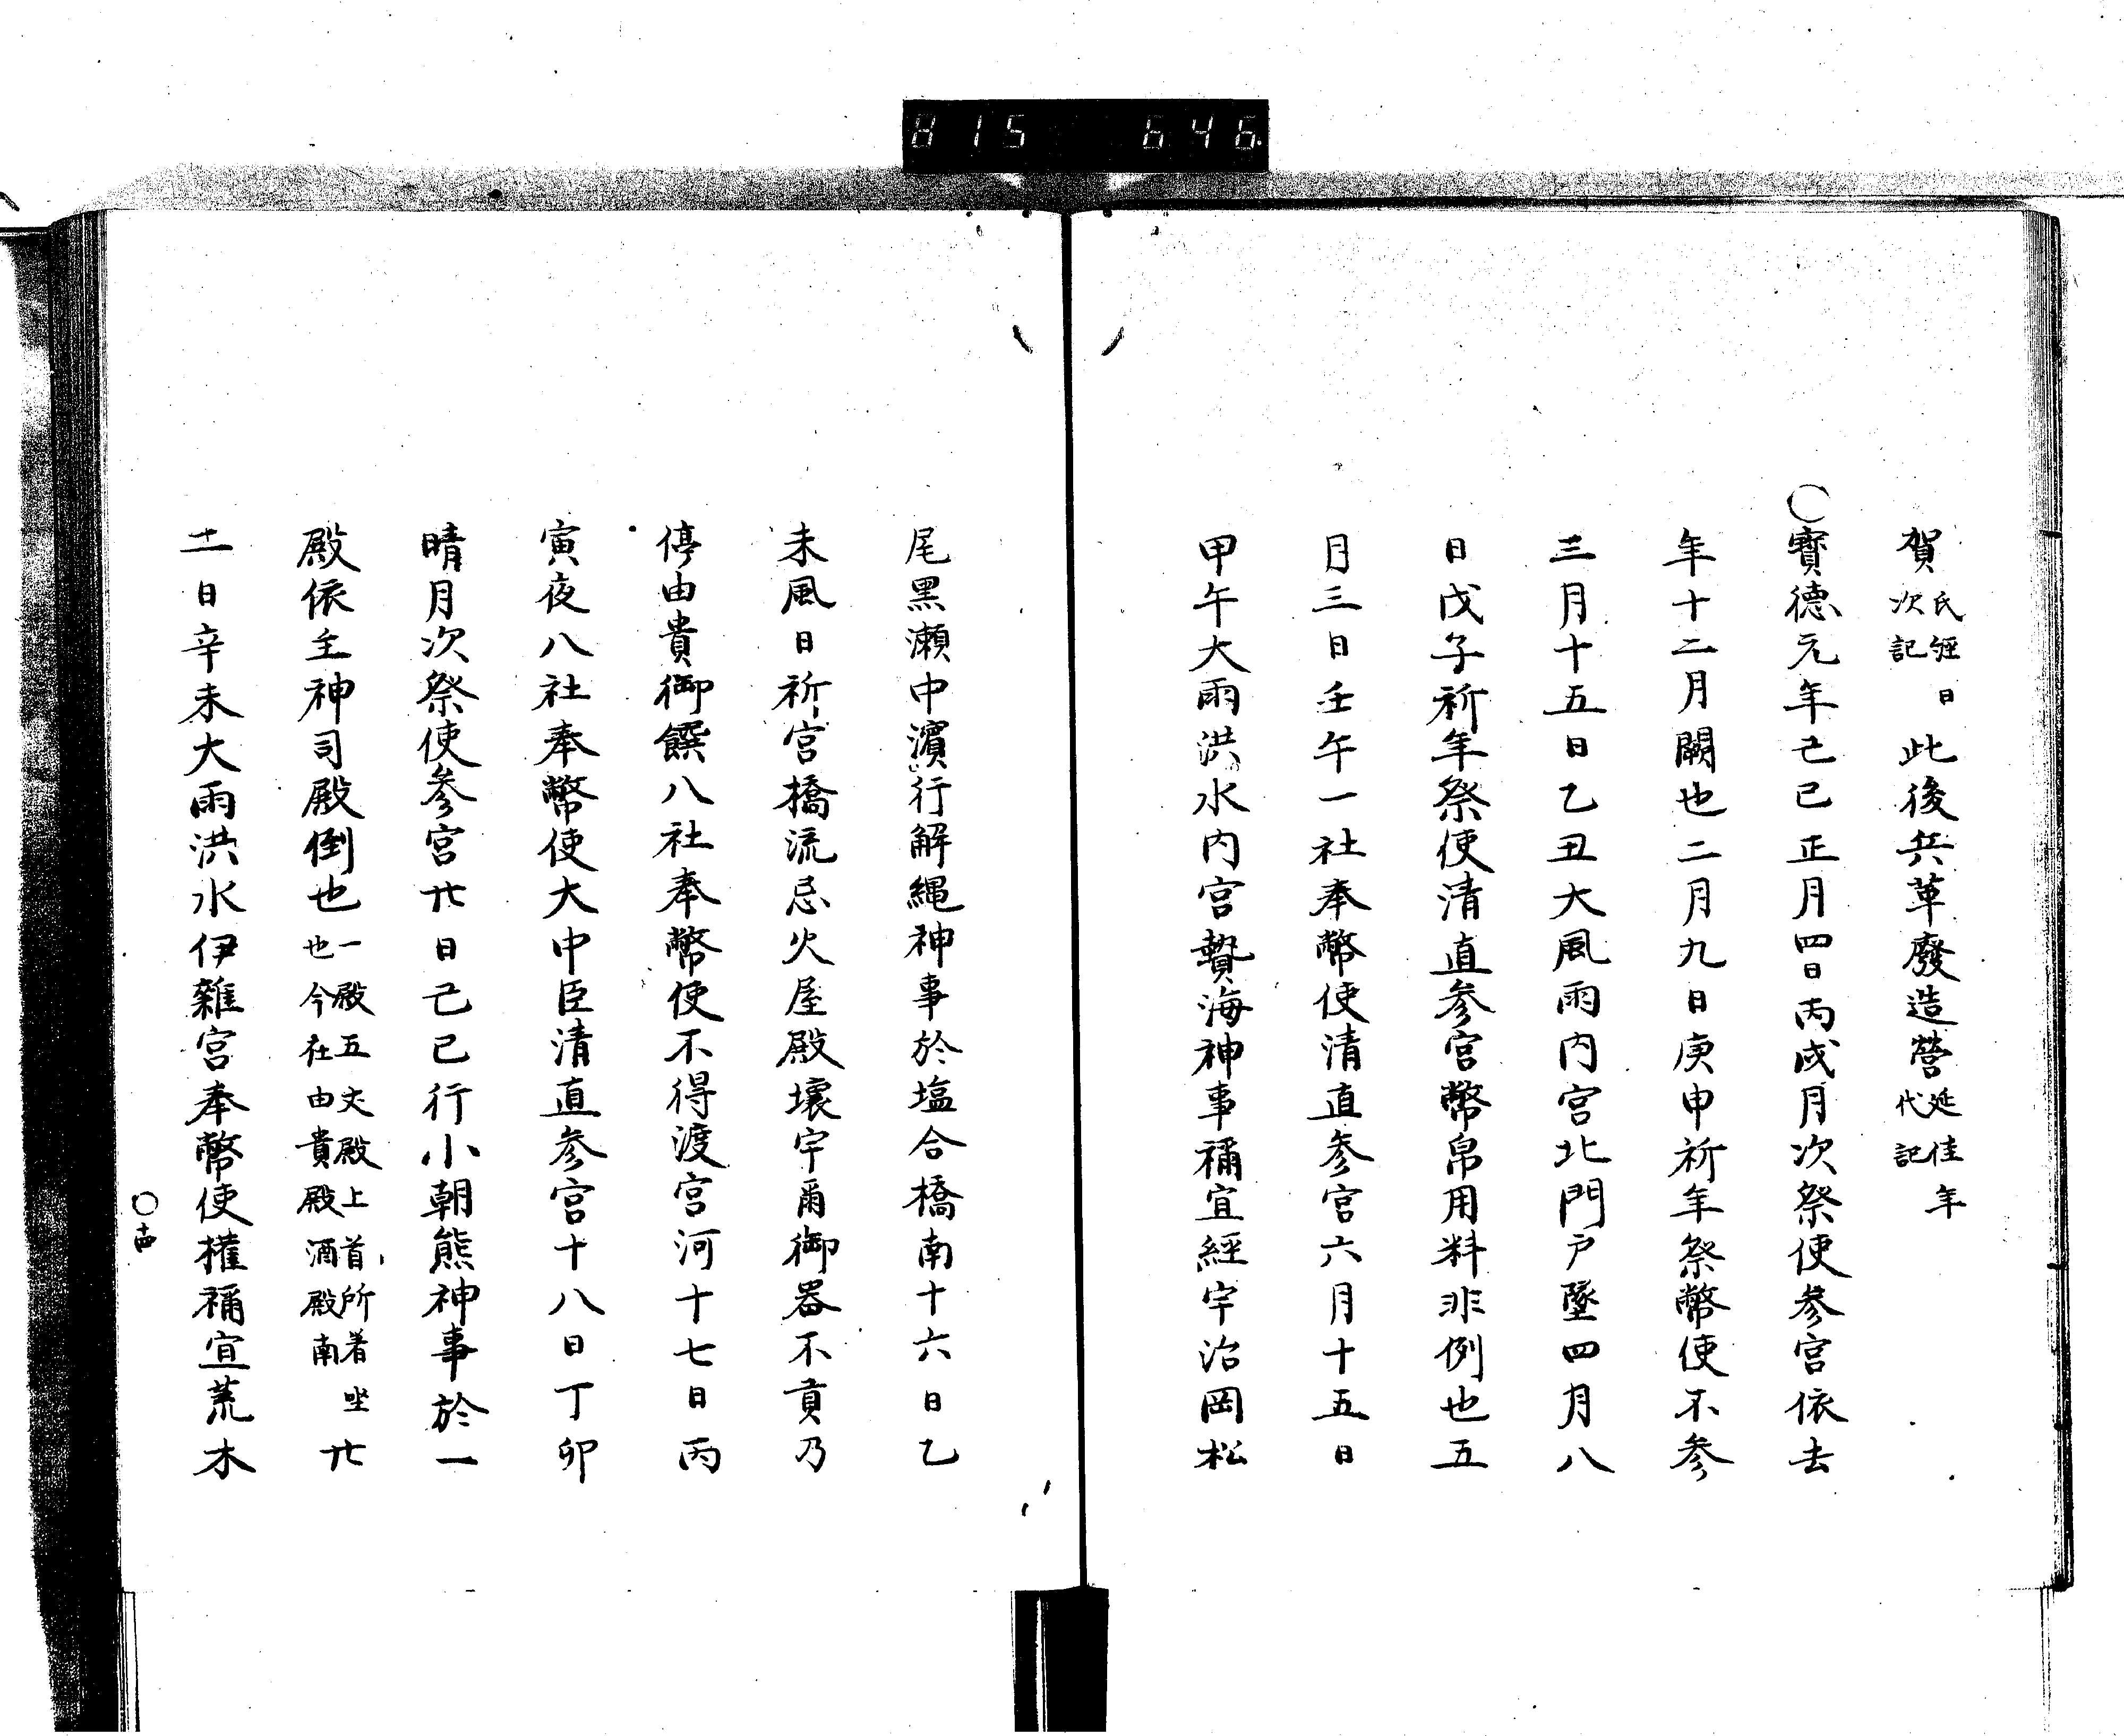 815 646
賀氏経日次記此後兵革廢造營延佳年代記
○寳德元年己巳正月四日丙戌月次祭使参宮依去
年十二月闕也二月九日庚申祈年祭幣使不参
三月十五日乙丑大風雨内宮北門戸墜四月八
日戊子祈年祭使清直参宮幣帛用料非例也五
月三日壬午一社奉幣使清直参宮六月十五日
甲午大雨洪水内宮贄海神事禰宜經宇治岡松
尾黒瀬中濱行解縄神事於塩合橋南十六日乙
未風日祈宮橋流忌火屋殿壞宇爾御器不貢乃
停由貴御饌八社奉幣使不得渡宮河十七日丙
寅夜八社奉幣使大中臣清直参宮十八日丁卯
晴月次祭使参宮廿日己巳行小朝熊神事於一
殿依主神司殿倒也一殿五丈殿上首所著坐也今在由貴殿酒殿南廿
一日辛未大雨洪水伊雜宮奉幣使權禰宜荒木
○十四